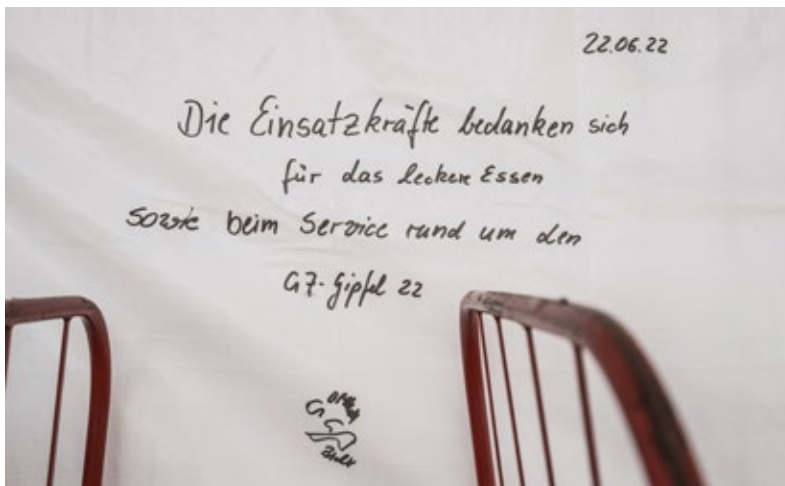 22.06.22
Die Einsatzkräfte bedanken sich
für das leckere Essen
sowie beim Service rund um den
G7-Gipfel 22